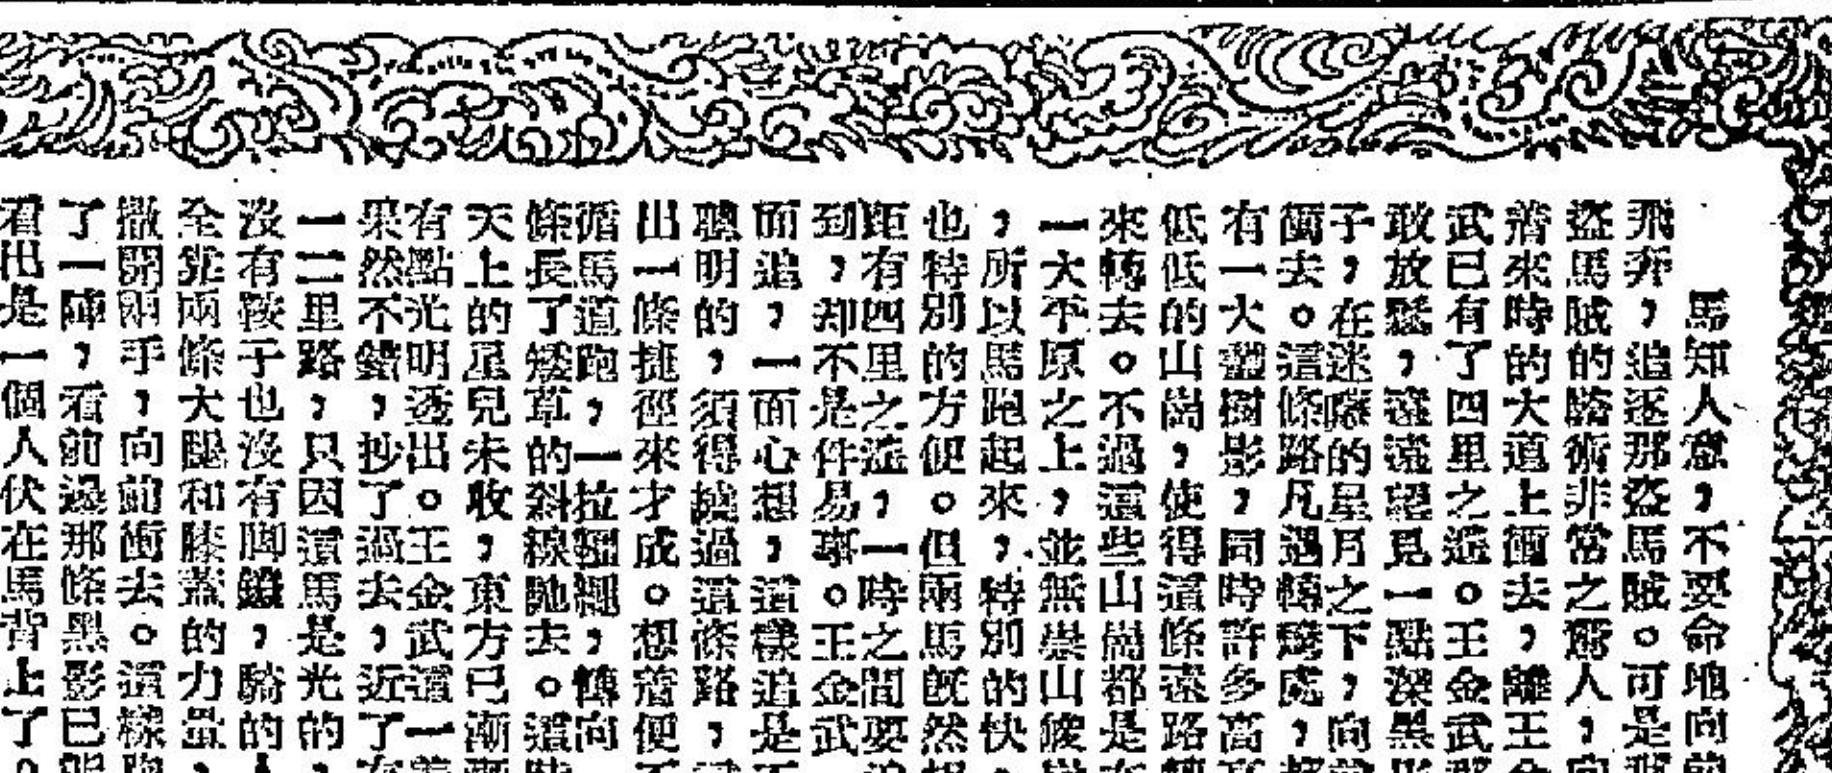 馬知人意，不要命地向前
飛奔，追逐那盜馬賊。可是那
盜馬賊的騎術非常之驚人，向
着來時的大道上衝去，離王金
武已有了四里之遙。王金武那
敢放鬆，遠遠望見一點深黑影
子，在迷曚的星月之下，向前
衝去。這條路凡遇轉灣處，
有一大叢樹影，同時許多高
低低的山崗，使得這條遠路轉
來轉去。不過這些山崗都是在
一大平原之上，並無崇山峻嶺
，所以馬跑起來，特別的快，
也特別的方便。但兩馬旣然相
距有四里之遙，一時之間要追
到，却不是件易事。王金武
面追，一面心想，這樣追是不
聰明的，須得繞過這條路，
出一條捷徑來才成。想着便不
循馬道跑，一拉韁繩，轉向
條長了矮草的斜線馳去。這時
天上的星兒未收，東方已漸漸
有點光明透出。王金武這一着
果然不錯，抄了過去，近了有
一二里路，只因這馬是光的，
沒有鞍子也沒有脚鐙，騎的人
全靠兩條大腿和膝蓋的力量，
撒開兩手，向前衝去。這樣跑
了一陣，看前邊那條黑影已能
看出是一個人伏在馬背上了。